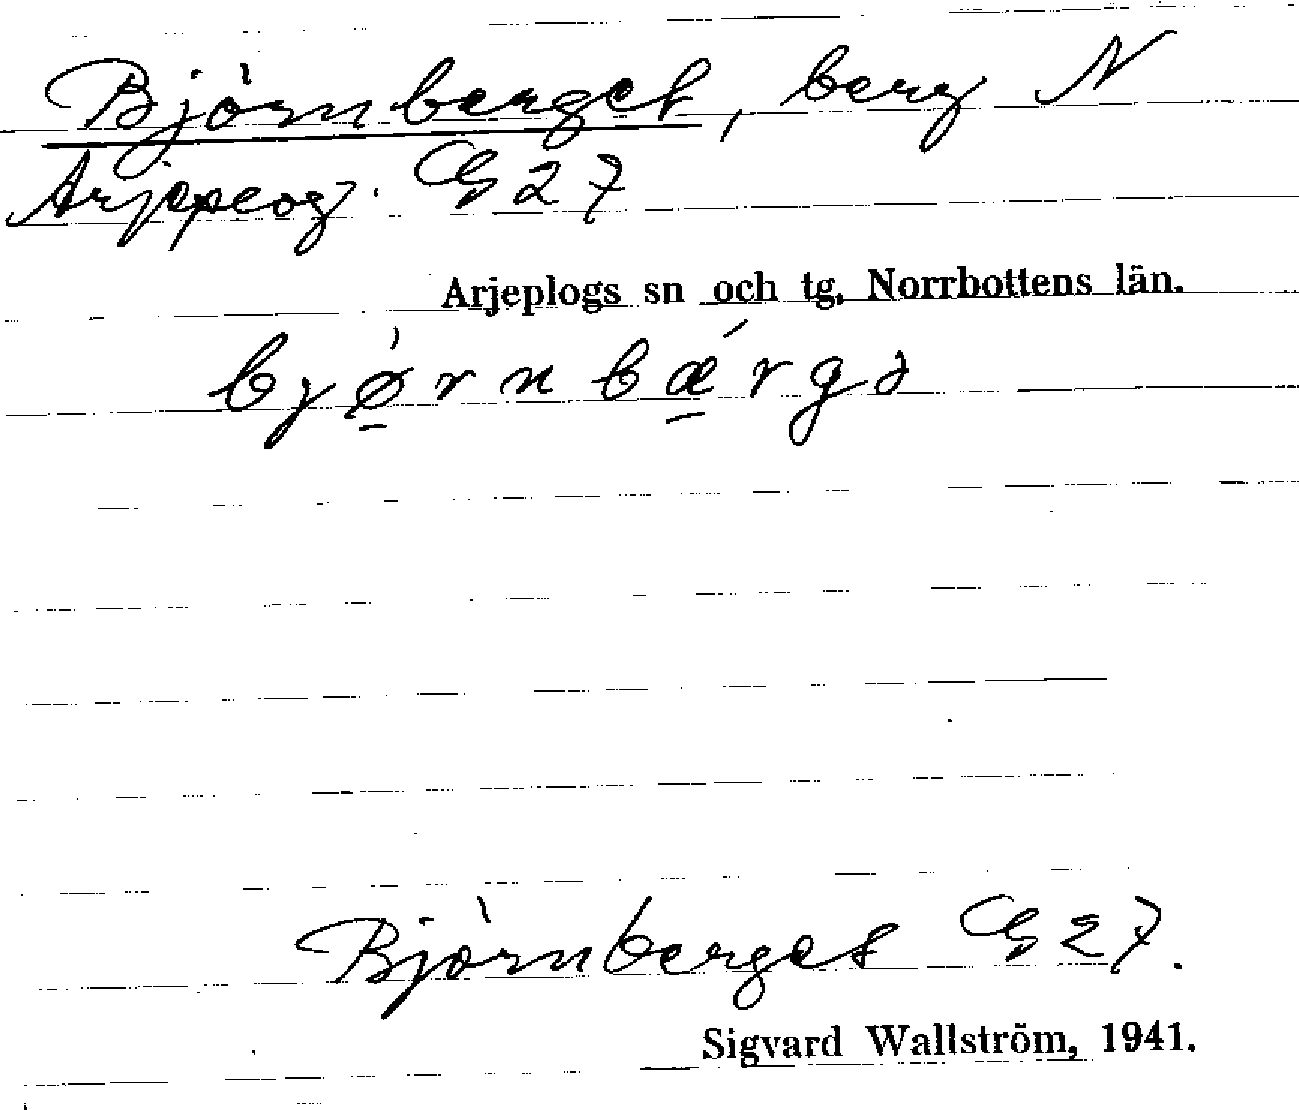 Björnberget, berg N
Arjeplog. G 27
Arjeplogs sn och tg, Norrbottens län.
bjø̲̀rnbǽ̲rgə
Björnberget G 27.
Sigvard Wallström, 1941.